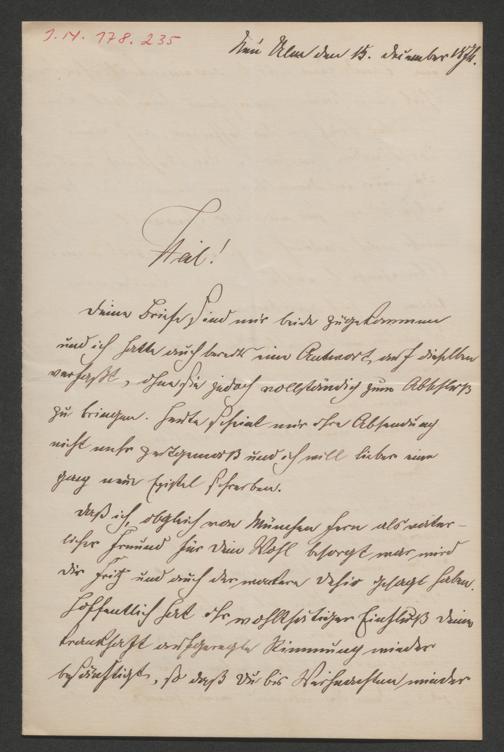 J. N. 178.235
Neu Ulm den 15. December 187
Heil!
Deine Briefe sind mir beide zugekommen
und ich hatte auch bereits eine Antwort auf dieselben
verfaßt, ohne sie jedoch vollständig zum Abschluß
zu bringen. Heute scheint mir ihre Absendung
nicht mehr zeitgemäß und ich will lieber eine
ganz neue Epistel schreiben.
Daß ich, obgleich von München fern als väter-
licher Freund für Dein Wohl besorgt war wird
Dir Fritz und auch der wackere Dehio gesagt haben.
Hoffentlich hat ihr wohlthätiger Einfluß Deine
krankhaft aufgeregte Stimmung wieder
besänftigt, so daß Du bis Weihnachten wieder